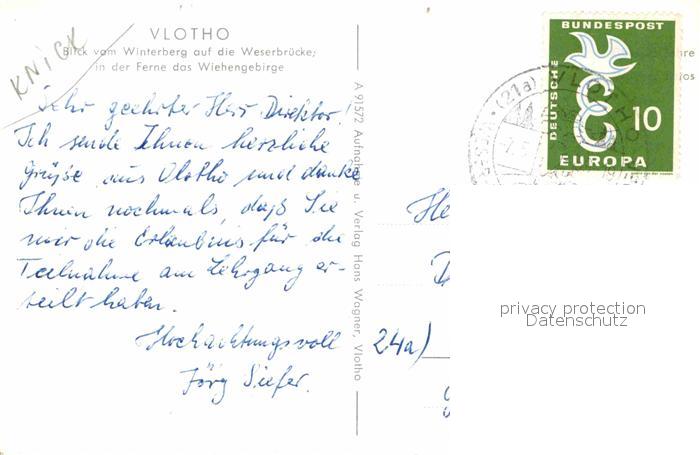 VLOTHO
Blick vom Winterberg auf die Weserbrücke;
in der Ferne das Wiehengebirge
KNICK
Sehr geehrter Herr Direktor!
Ich sende Ihnen herzliche
Grüße aus Vlotho und danke
Ihnen nochmals, daß Sie
mir die Erlaubnis für die
Teilnahme am Lehrgang er-
teilt haben.
Hochachtungsvoll
Jörg Siefer.
A 91572 Aufnahme u. Verlag Hans Wagner, Vlotho
DEUTSCHE
BUNDESPOST
10
EUROPA
(21a) VLOTHO
He
D
24a)
privacy protection
Datenschutz